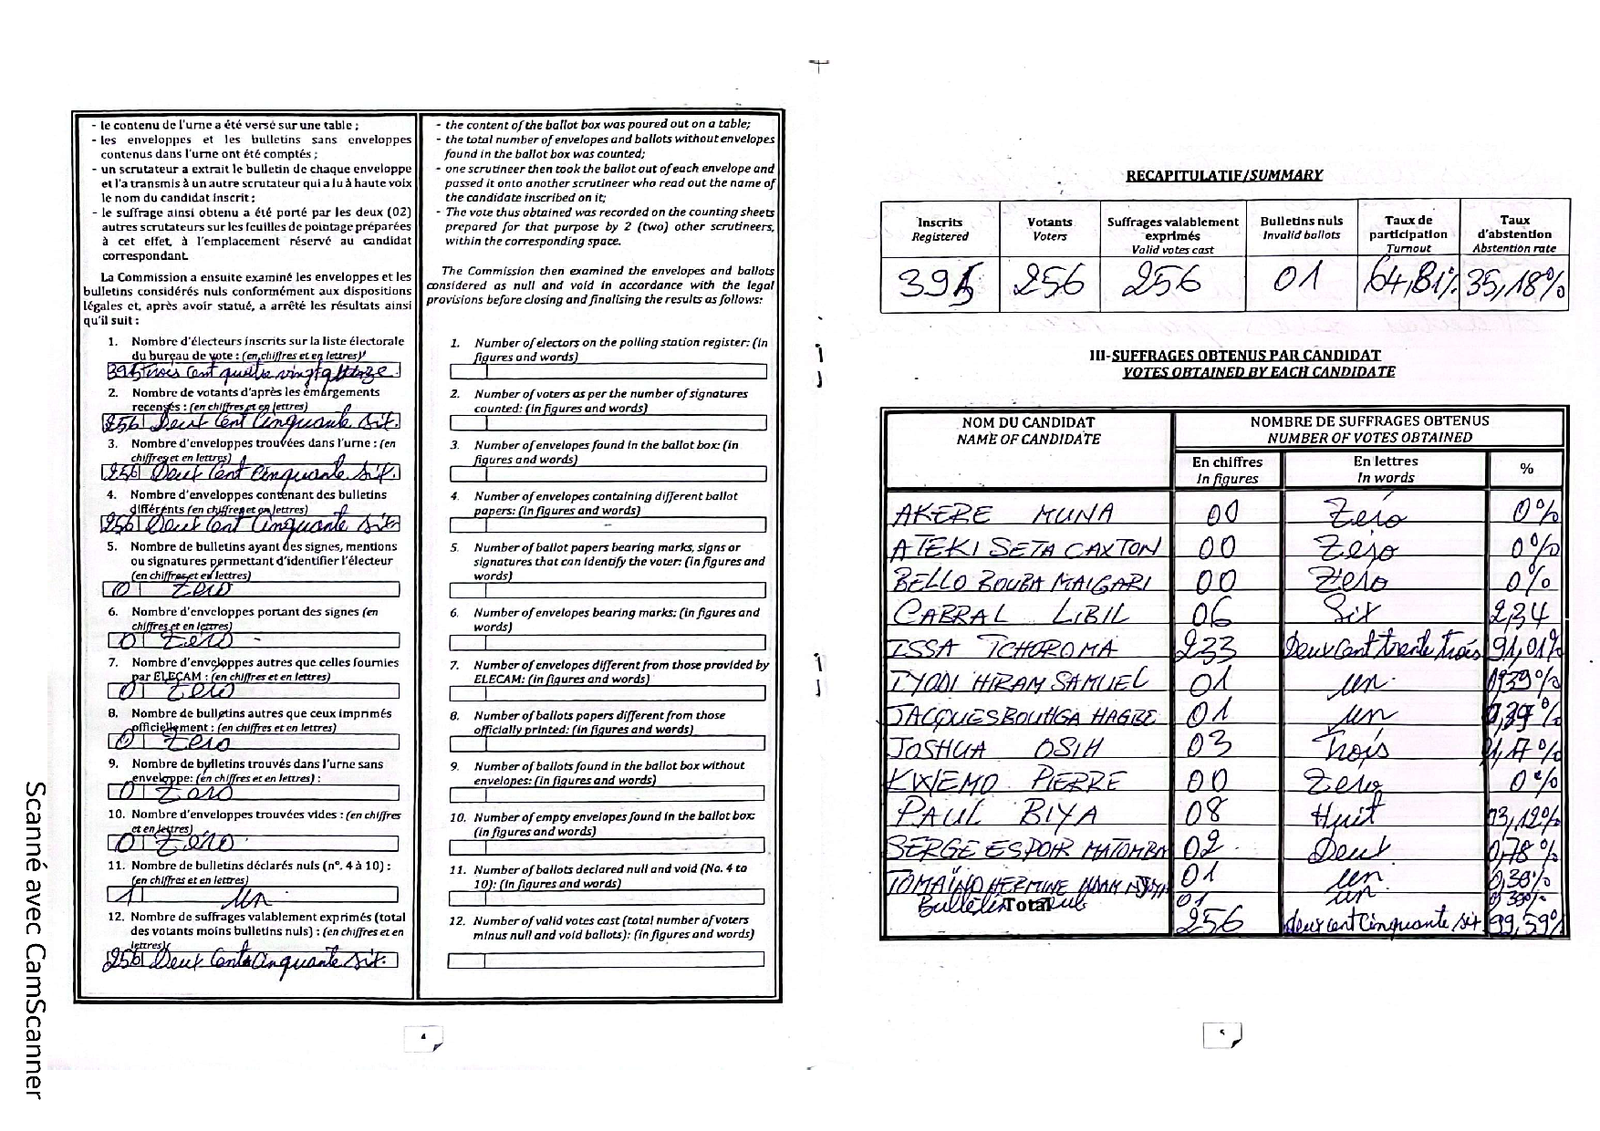 - le contenu de l'urne a été versé sur une table ;
- les enveloppes et les bulletins sans enveloppes
contenus dans l'urne ont été comptés ;
- un scrutateur a extrait le bulletin de chaque enveloppe
et l'a transmis à un autre scrutateur qui a lu à haute voix
le nom du candidat inscrit ;
- le suffrage ainsi obtenu a été porté par les deux (02)
autres scrutateurs sur les feuilles de pointage préparées
à cet effet, à l'emplacement réservé au candidat
correspondant.
La Commission a ensuite examiné les enveloppes et les
bulletins considérés nuls conformément aux dispositions
légales et, après avoir statué, a arrêté les résultats ainsi
qu'il suit :
1. Nombre d'électeurs inscrits sur la liste électorale
du bureau de vote : (en chiffres et en lettres)
395 trois cent quatre vingt quinze
2. Nombre de votants d'après les émargements
recensés : (en chiffres et en lettres)
256 Deux Cent Cinquante Six.
3. Nombre d'enveloppes trouvées dans l'urne : (en
chiffres et en lettres)
256 Deux Cent Cinquante Six.
4. Nombre d'enveloppes contenant des bulletins
différents (en chiffres et en lettres)
256 Deux Cent Cinquante Six
5. Nombre de bulletins ayant des signes, mentions
ou signatures permettant d'identifier l'électeur
(en chiffres et en lettres)
0 Zéro
6. Nombre d'enveloppes portant des signes (en
chiffres et en lettres)
0 Zéro -
7. Nombre d'enveloppes autres que celles fournies
par ELECAM : (en chiffres et en lettres)
0 Zéro
8. Nombre de bulletins autres que ceux imprimés
officiellement : (en chiffres et en lettres)
0 Zéro
9. Nombre de bulletins trouvés dans l'urne sans
enveloppe: (en chiffres et en lettres) :
0 Zéro
10. Nombre d'enveloppes trouvées vides : (en chiffres
et en lettres)
0 Zéro
11. Nombre de bulletins déclarés nuls (n°. 4 à 10) :
(en chiffres et en lettres)
1 Un
12. Nombre de suffrages valablement exprimés (total
des votants moins bulletins nuls) : (en chiffres et en
lettres)
256 Deux Cent Cinquante Six.
- the content of the ballot box was poured out on a table;
- the total number of envelopes and ballots without envelopes
found in the ballot box was counted;
- one scrutineer then took the ballot out of each envelope and
passed it onto another scrutineer who read out the name of
the candidate inscribed on it;
- The vote thus obtained was recorded on the counting sheets
prepared for that purpose by 2 (two) other scrutineers,
within the corresponding space.
The Commission then examined the envelopes and ballots
considered as null and void in accordance with the legal
provisions before closing and finalising the results as follows:
1. Number of electors on the polling station register: (in
figures and words)
2. Number of voters as per the number of signatures
counted: (in figures and words)
3. Number of envelopes found in the ballot box: (in
figures and words)
4. Number of envelopes containing different ballot
papers: (in figures and words)
5. Number of ballot papers bearing marks, signs or
signatures that can identify the voter: (in figures and
words)
6. Number of envelopes bearing marks: (in figures and
words)
7. Number of envelopes different from those provided by
ELECAM: (in figures and words)
8. Number of ballots papers different from those
officially printed: (in figures and words)
9. Number of ballots found in the ballot box without
envelopes: (in figures and words)
10. Number of empty envelopes found in the ballot box:
(in figures and words)
11. Number of ballots declared null and void (No. 4 to
10): (in figures and words)
12. Number of valid votes cast (total number of voters
minus null and void ballots): (in figures and words)
4
RECAPITULATIF/SUMMARY
Inscrits Registered | Votants Voters | Suffrages valablement exprimés Valid votes cast | Bulletins nuls Invalid ballots | Taux de participation Turnout | Taux d'abstention Abstention rate
395 256 256 01 64,81% 35,18%
III-SUFFRAGES OBTENUS PAR CANDIDAT
VOTES OBTAINED BY EACH CANDIDATE
NOM DU CANDIDAT NOMBRE DE SUFFRAGES OBTENUS
NAME OF CANDIDATE NUMBER OF VOTES OBTAINED
En chiffres En lettres %
In figures In words
AKERE MUNA 00 Zéro 0%
ATEKI SETA CAXTON 00 Zéro 0%
BELLO BOUBA MAIGARI 00 Zéro 0%
CABRAL LIBIL 06 Six 2,34
ISSA TCHOROMA 233 Deux cent trente trois 91,01%
IYODI HIRAM SAMUEL 01 un 0,39%
JACQUES BOUHGA HAGBE 01 un 0,39%
JOSHUA OSIH 03 Trois 1,17%
KWEMO PIERRE 00 Zéro 0%
PAUL BIYA 08 Huit 03,12%
SERGE ESPOIR MATOMBA 02 Deux 0,78%
TOMAÏNO HERMINE 01 un 0,38%
Bulletin nul 01 un 0,39%
Total 256 deux cent Cinquante six 99,59%
5
Scanné avec CamScanner